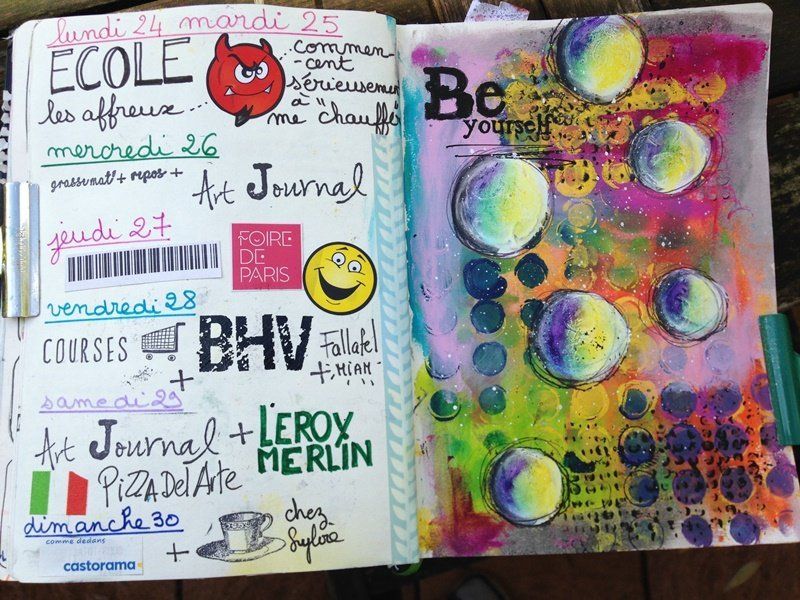 lundi 24 mardi 25
ECOLE
commen-
-cent
les affreux...
sérieusement
à
me "chauffer
mercredi 26
grasse mat' + repos +
Art Journal
jeudi 27
FOIRE
DE
PARIS
vendredi 28
COURSES
+
BHV
Fallafel
+ MIAM
samedi 29
Art Journal + LEROY
MERLIN
PIZZA Del Arte
dimanche 30
comme dedans
castorama
+
chez
Sylvie
Be
yourself